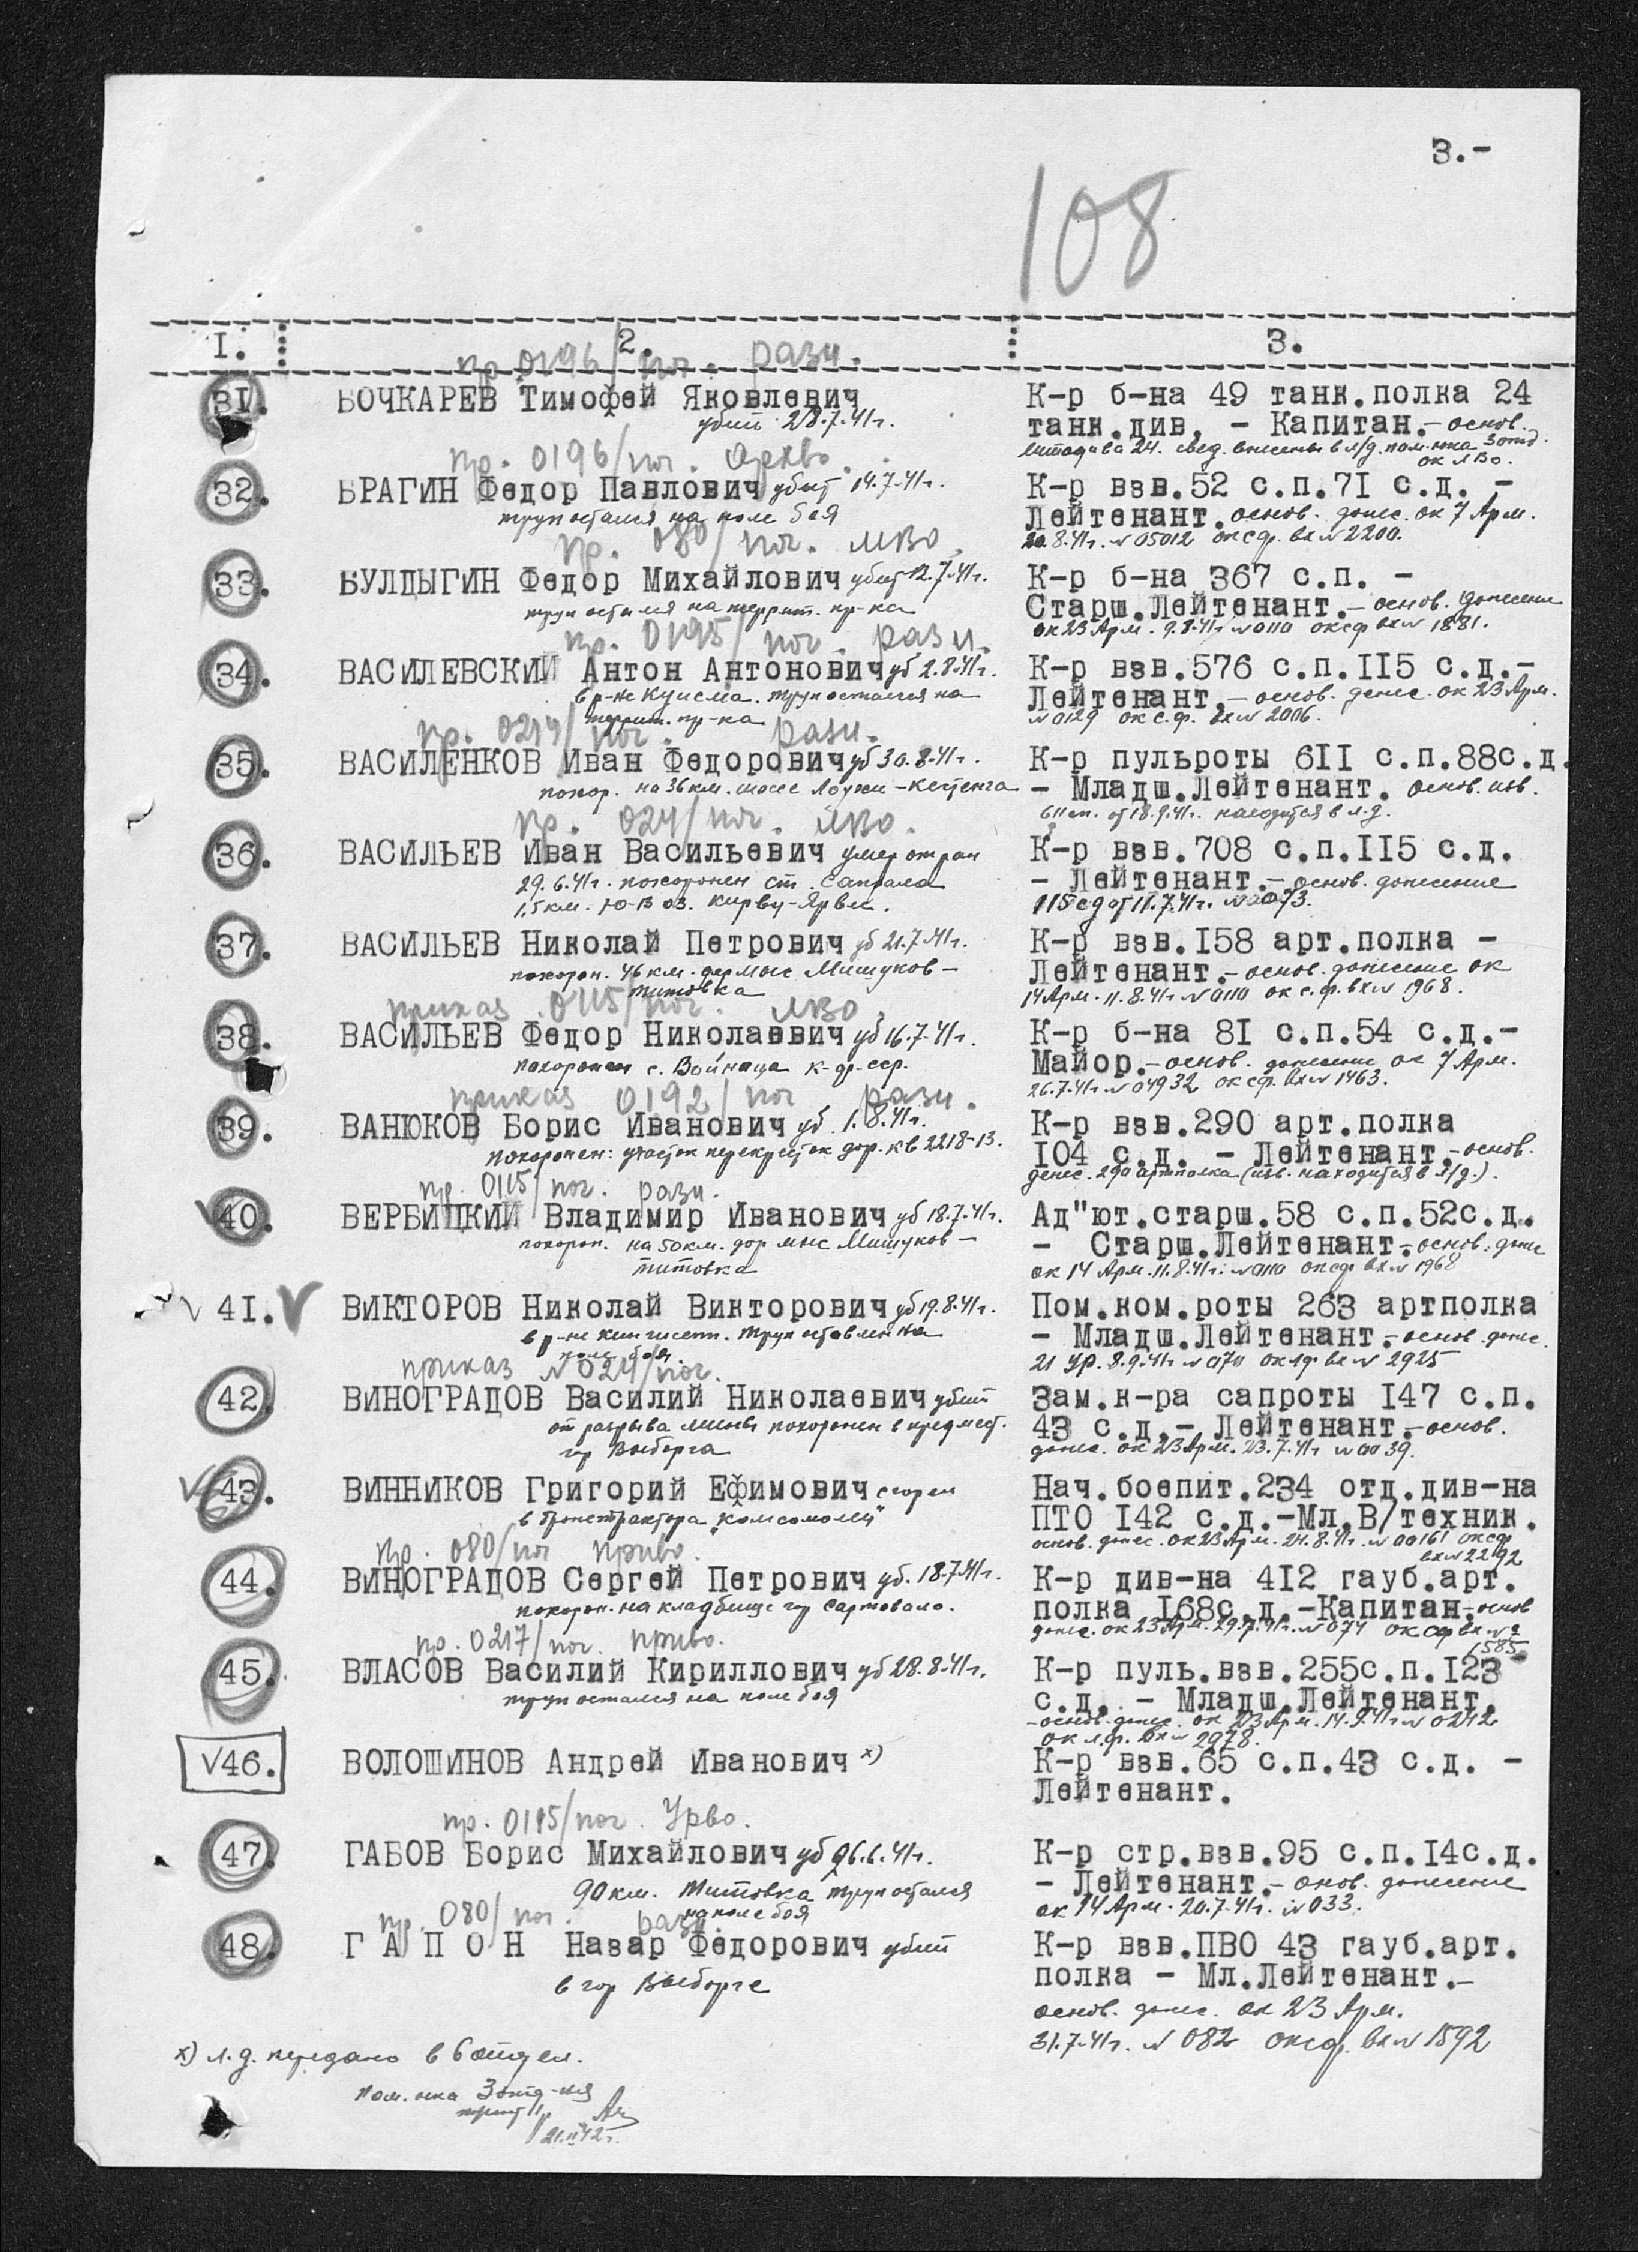 3.-
108
I. 2. 3.
пр 0196/пог. разн.
31. БОЧКАРЕВ Тимофей Яковлевич
убит 28.7.41г.
К-р б-на 49 танк.полка 24
танк.див. - Капитан.- основ.
24. свед. внесены в л/д. пом.нка 3 отд.
ок ЛВО.
пр. 0196/пог.
32. БРАГИН Федор Павлович убит 14.7.41г.
труп остался на поле боя
К-р взв.52 с.п.71 с.д. -
Лейтенант. основ. донес. ок 7 Арм.
20.8.41г. № 05012 ок сф. вх № 2200.
пр. 080/пог. ЛВО
33. БУЛДЫГИН Федор Михайлович убит 12.7.41г.
труп остался на террит. пр-ка
К-р б-на 367 с.п. -
Старш.Лейтенант.- основ. донесение
ок 23 Арм. 9.8.41г. № 0110 ок сф вх № 1881.
пр. 0195/пог. разн.
34. ВАСИЛЕВСКИЙ Антон Антонович уб 2.8.41г.
в р-не Куисма. труп остался на
террит. пр-ка
К-р взв.576 с.п.115 с.д.-
Лейтенант.- основ. донес. ок 23 Арм.
№ 0129 ок с.ф. вх № 2006.
пр. 0214/пог. разн.
35. ВАСИЛЕНКОВ Иван Федорович уб 30.8.41г.
похор. на 36 км. шоссе Лоухи-Кестенга
К-р пульроты 611 с.п.88с.д.
- Младш.Лейтенант. основ. изв.
611 сп. от 18.9.41г. находится в л.д.
пр. 024/пог. ЛВО.
36. ВАСИЛЬЕВ Иван Васильевич умер от ран
29.6.41г. похоронен ст.
1,5 км. Ю-В оз. Кирву-Ярви.
К-р взв.708 с.п.115 с.д.
- Лейтенант.- основ. донесение
115 сд от 11.7.41г. № 0073.
37. ВАСИЛЬЕВ Николай Петрович уб 21.7.41г.
похорон. 46 км. дор мыс Мишуков-
Титовка
К-р взв.158 арт.полка -
Лейтенант.- основ. донесение ок
14 Арм. 11.8.41г. № 0110 ок с.ф. вх № 1968.
приказ 0115/пог. ЛВО
38. ВАСИЛЬЕВ Федор Николаевич уб 16.7.41г.
похоронен с. Войница к-ф-сср.
К-р б-на 81 с.п.54 с.д.-
Майор.- основ. донесение ок 7 Арм.
26.7.41г. № 04932 ок сф. вх № 1463.
приказ 0192/пог разн.
39. ВАНЮКОВ Борис Иванович уб. 1.8.41г.
похоронен: участок перекресток дор. кв 2218-13.
К-р взв.290 арт.полка
104 с.д. - Лейтенант.- основ.
донес. 290 артполка (изв. находится в л/д.).
пр. 0115/пог. разн.
40. ВЕРБИЦКИЙ Владимир Иванович уб 18.7.41г.
похорон. на 50 км. дор мыс Мишуков-
Титовка
Ад"ют.старш.58 с.п.52с.д.
- Старш.Лейтенант.- основ. донес
ок 14 Арм. 11.8.41г. № 0110 ок сф вх № 1968
√ 41. V ВИКТОРОВ Николай Викторович уб 19.8.41г.
в р-не Кингисепп. труп оставлен на
поле боя.
Пом.ком.роты 263 артполка
- Младш.Лейтенант.- основ. донес.
21 УР. 8.9.41г. № 0170 вх № 2925
приказ № 024/пог.
42. ВИНОГРАДОВ Василий Николаевич убит
от разрыва мины похоронен в предмест.
гор Выборга
Зам.к-ра сапроты 147 с.п.
43 с.д.- Лейтенант.- основ.
донес. ок 23 Арм. 23.7.41г № 0039.
43. ВИННИКОВ Григорий Ефимович сгорел
в бронетрактора "Комсомолец"
Нач.боепит.234 отд.див-на
ПТО 142 с.д.-Мл.В/техник.
основ. донес. ок 23 Арм. 24.8.41г. № 00161 ок сф
вх № 2292
пр. 080/пог приво.
44. ВИНОГРАДОВ Сергей Петрович уб. 18.7.41г.
похорон. на кладбище гор Сартовало.
К-р див-на 412 гауб.арт.
полка 168с.д.-Капитан.- основ
донес. ок 23 Арм. 29.7.41г. № 074 ок сф вх №
1585
пр. 0217/пог. приво.
45. ВЛАСОВ Василий Кириллович уб 28.8.41г.
труп остался на поле боя
К-р пуль.взв.255с.п.123
с.д. - Младш.Лейтенант.
- основ. донес. ок 23 Арм. 14.9.41г № 0242
ок л.ф. вх № 2978.
√46. ВОЛОШИНОВ Андрей Иванович х)
К-р взв.65 с.п.43 с.д. -
Лейтенант.
пр. 0195/пог. Урво.
47. ГАБОВ Борис Михайлович уб 26.6.41г.
90 км. Титовка труп остался
на поле боя
К-р стр.взв.95 с.п.14с.д.
- Лейтенант.- основ. донесение
ок 14 Арм. 20.7.41г. № 033.
пр. 080/пог. разн.
48. Г А П О Н Назар Федорович убит
в гор Выборге
К-р взв.ПВО 43 гауб.арт.
полка - Мл.Лейтенант.-
основ. донес. ок 23 Арм.
31.7.41г. № 082 ок сф. вх № 1592
х) л.д. передано в 6 отдел.
пом. нка 3 отд-ния
21.II 42г.